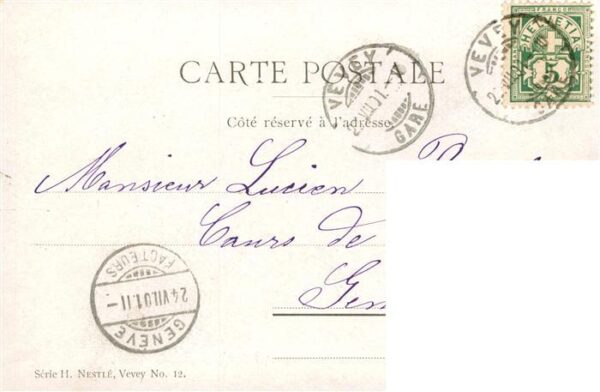 FRANCO
HELVETIA
5
VEVEY
VEVEY
GARE
CARTE POSTALE
Côté réservé à l'adresse
Monsieur Lucien
Cours de
GENÈVE
24 VII.01.11–
FACTEURS
Série H. NESTLÉ, Vevey No. 12.